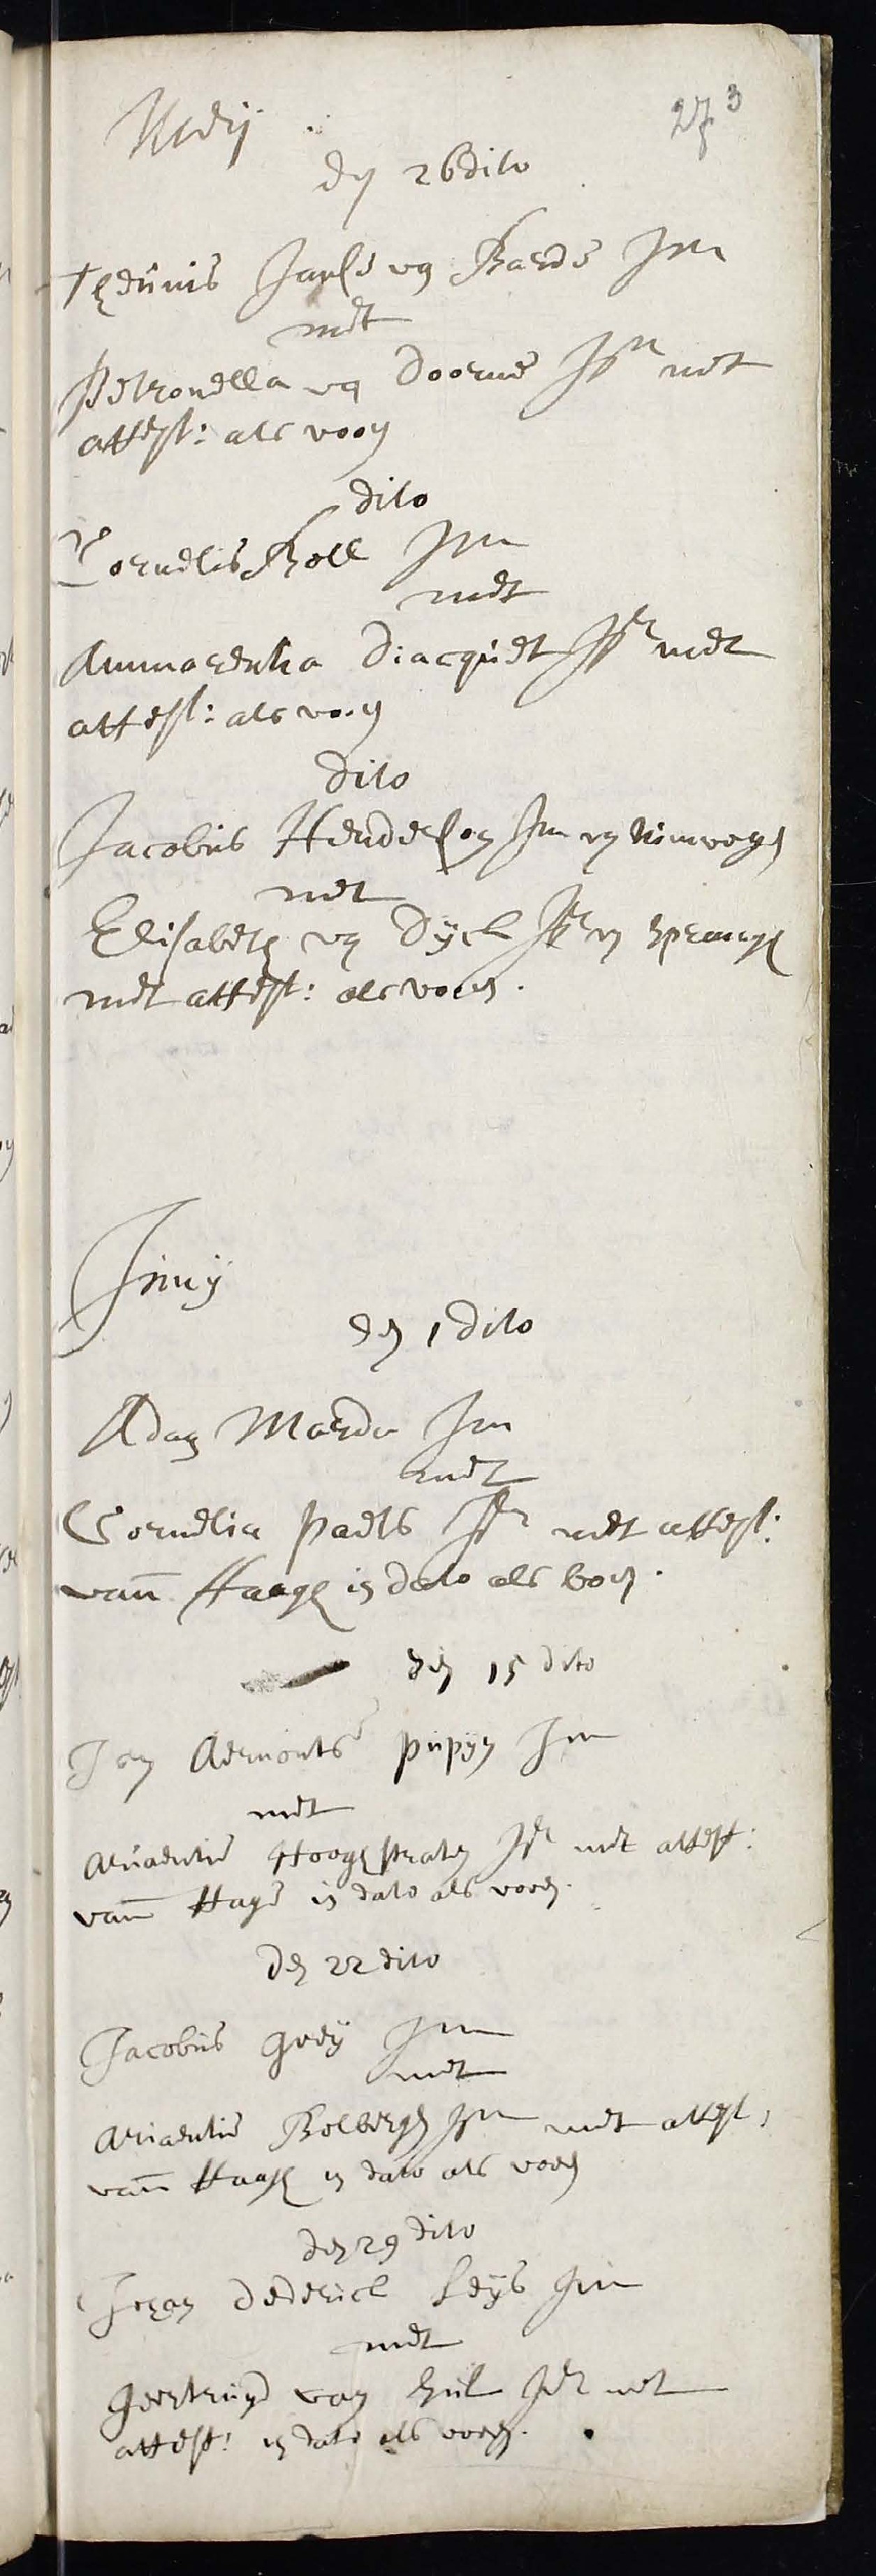 Meij
273
den 26 dito
Theunis Janse van Baerde Jm
met
Petronella van Doorne Jdr met
attest: als voor
dito
Cornelis Boll Jm
met
Annarenta Diacquet Jdr met
attest: als voor
dito
Jacobus Henderson Jm van Nimwegen
met
Elisabeth van Dijck Jdr van
met attest: als voor.
Junij
den 1 dito
Adam Maerda Jm
met
Cornelia Paets Jdr met attest:
vann Haage in dato als voor.
den 15 dito
Jan Aernouts Pupijn Jm
met
Ariaentie Hooghstraten Jdr met attest:
vann Hage in dato als voor.
den 22 dito
Jacobus Goeij Jm
met
Ariaentie Bolbergh Jdr met attest:
vann Haagh in dato als voor
den 29 dito
Johan Dederick Leijs Jm
met
Geertruijd van Hul Jdr met
attest: in dato als voor.